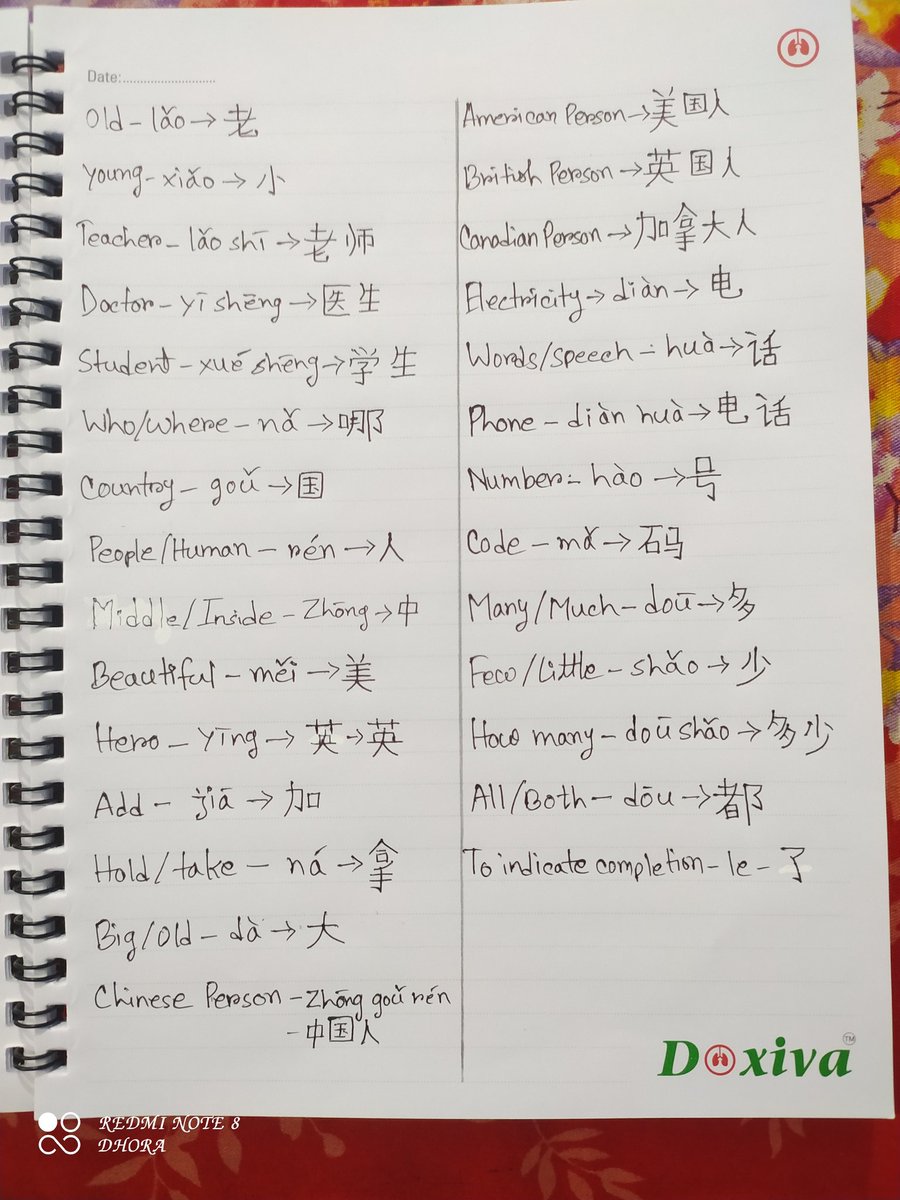 Date:............................
Old - lǎo → 老
Young - xiǎo → 小
Teacher - lǎo shī → 老师
Doctor - yī shēng → 医生
Student - xué shēng → 学生
Who/Where - nǎ → 哪
Country - goǔ → 国
People/Human - rén → 人
Middle/Inside - Zhōng → 中
Beautiful - měi → 美
Hero - yīng → 英 → 英
Add - jiā → 加
Hold/take - ná → 拿
Big/Old - dà → 大
Chinese Person - Zhōng goǔ rén
- 中国人
American Person → 美国人
British Person → 英国人
Canadian Person → 加拿大人
Electricity → diàn → 电
Words/Speech - huà → 话
Phone - diàn huà → 电话
Number - hào → 号
Code - mǎ → 码
Many/Much - doū → 多
Few/Little - shǎo → 少
How many - doū shǎo → 多少
All/Both - dōu → 都
To indicate completion - le - 了
Doxiva TM
REDMI NOTE 8
DHORA